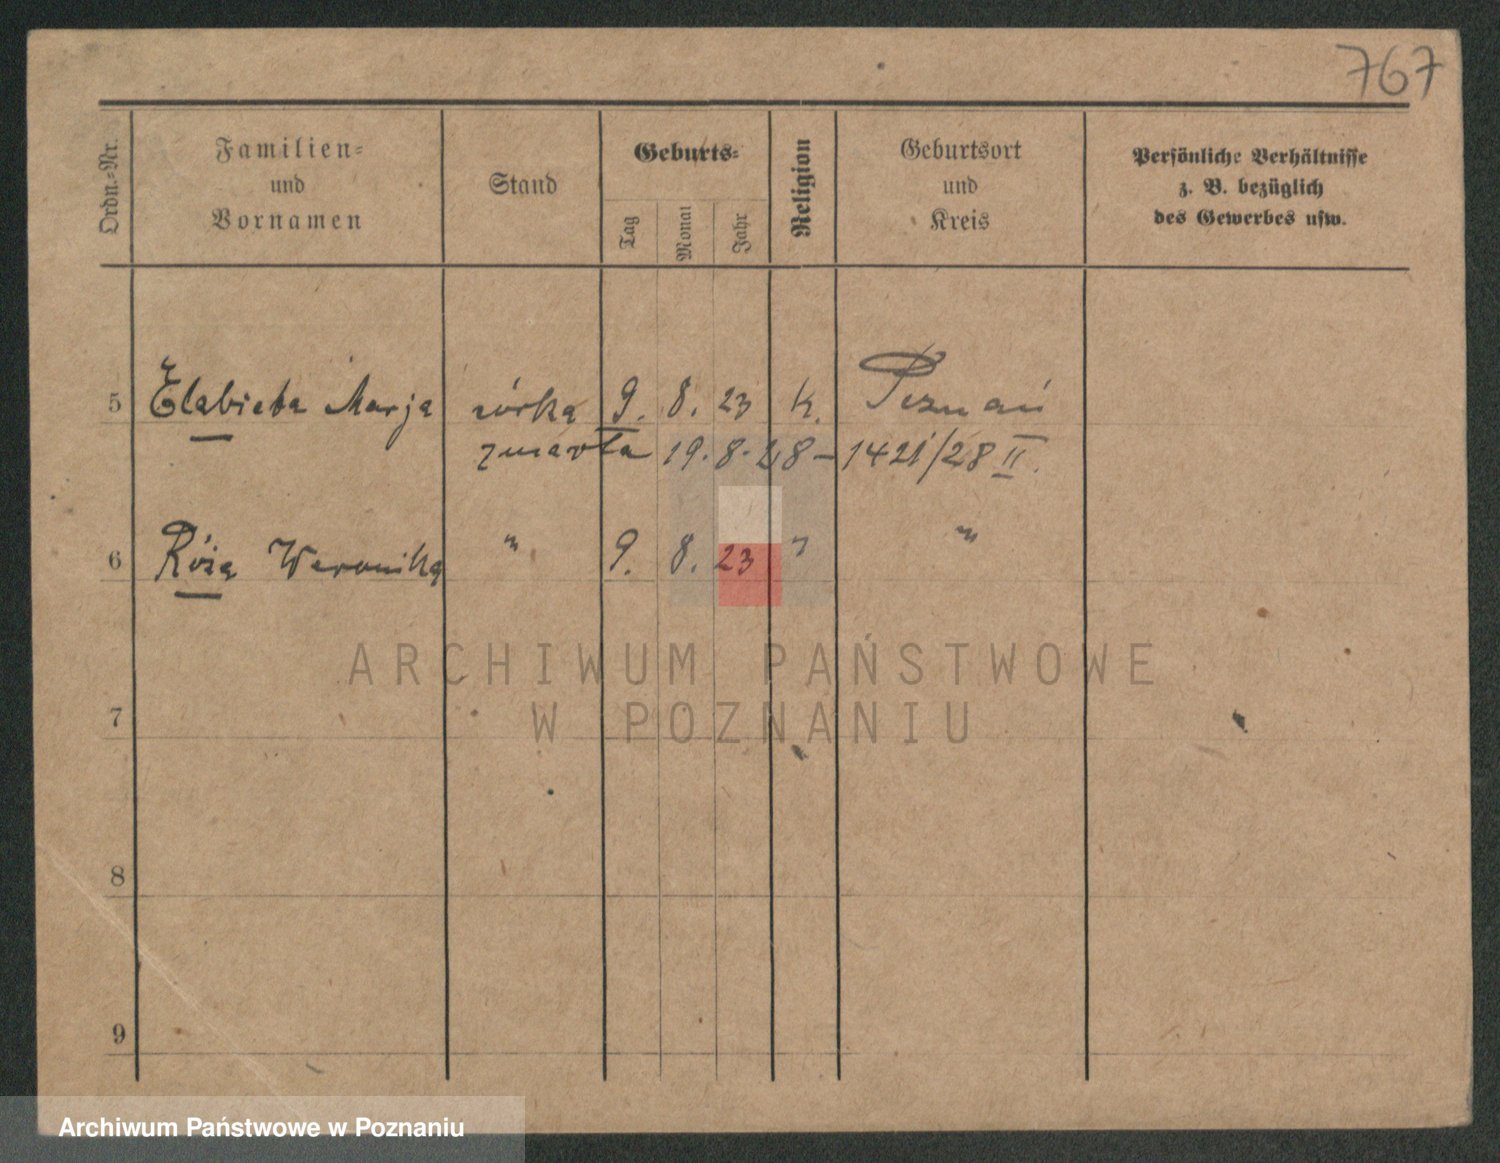 767
Ordn.-Nr.
Familien-
und
Vornamen
Stand
Geburts-
Tag
Monat
Jahr
Religion
Geburtsort
und
Kreis
Persönliche Verhältnisse
z. B. bezüglich
des Gewerbes usw.
5 Elżbieta Marja córka 9. 8. 23 k. Poznań
zmarła 19.8.28 – 1421/28 II.
6 Róża Weronika " 9. 8. 23 " "
ARCHIWUM PAŃSTWOWE
W POZNANIU
7
8
9
Archiwum Państwowe w Poznaniu